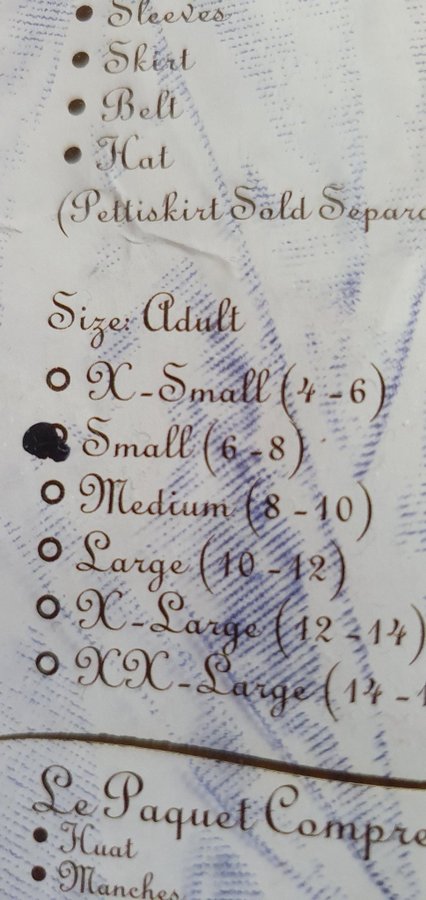 Sleeves
Skirt
Belt
Hat
(Pettiskirt Sold
Size: Adult
X-Small (4-6)
Small (6-8)
Medium (8-10)
Large (10-12)
X-Large (12-14)
XX-Large (14-1
Le Paquet Compre
Huat
Manches